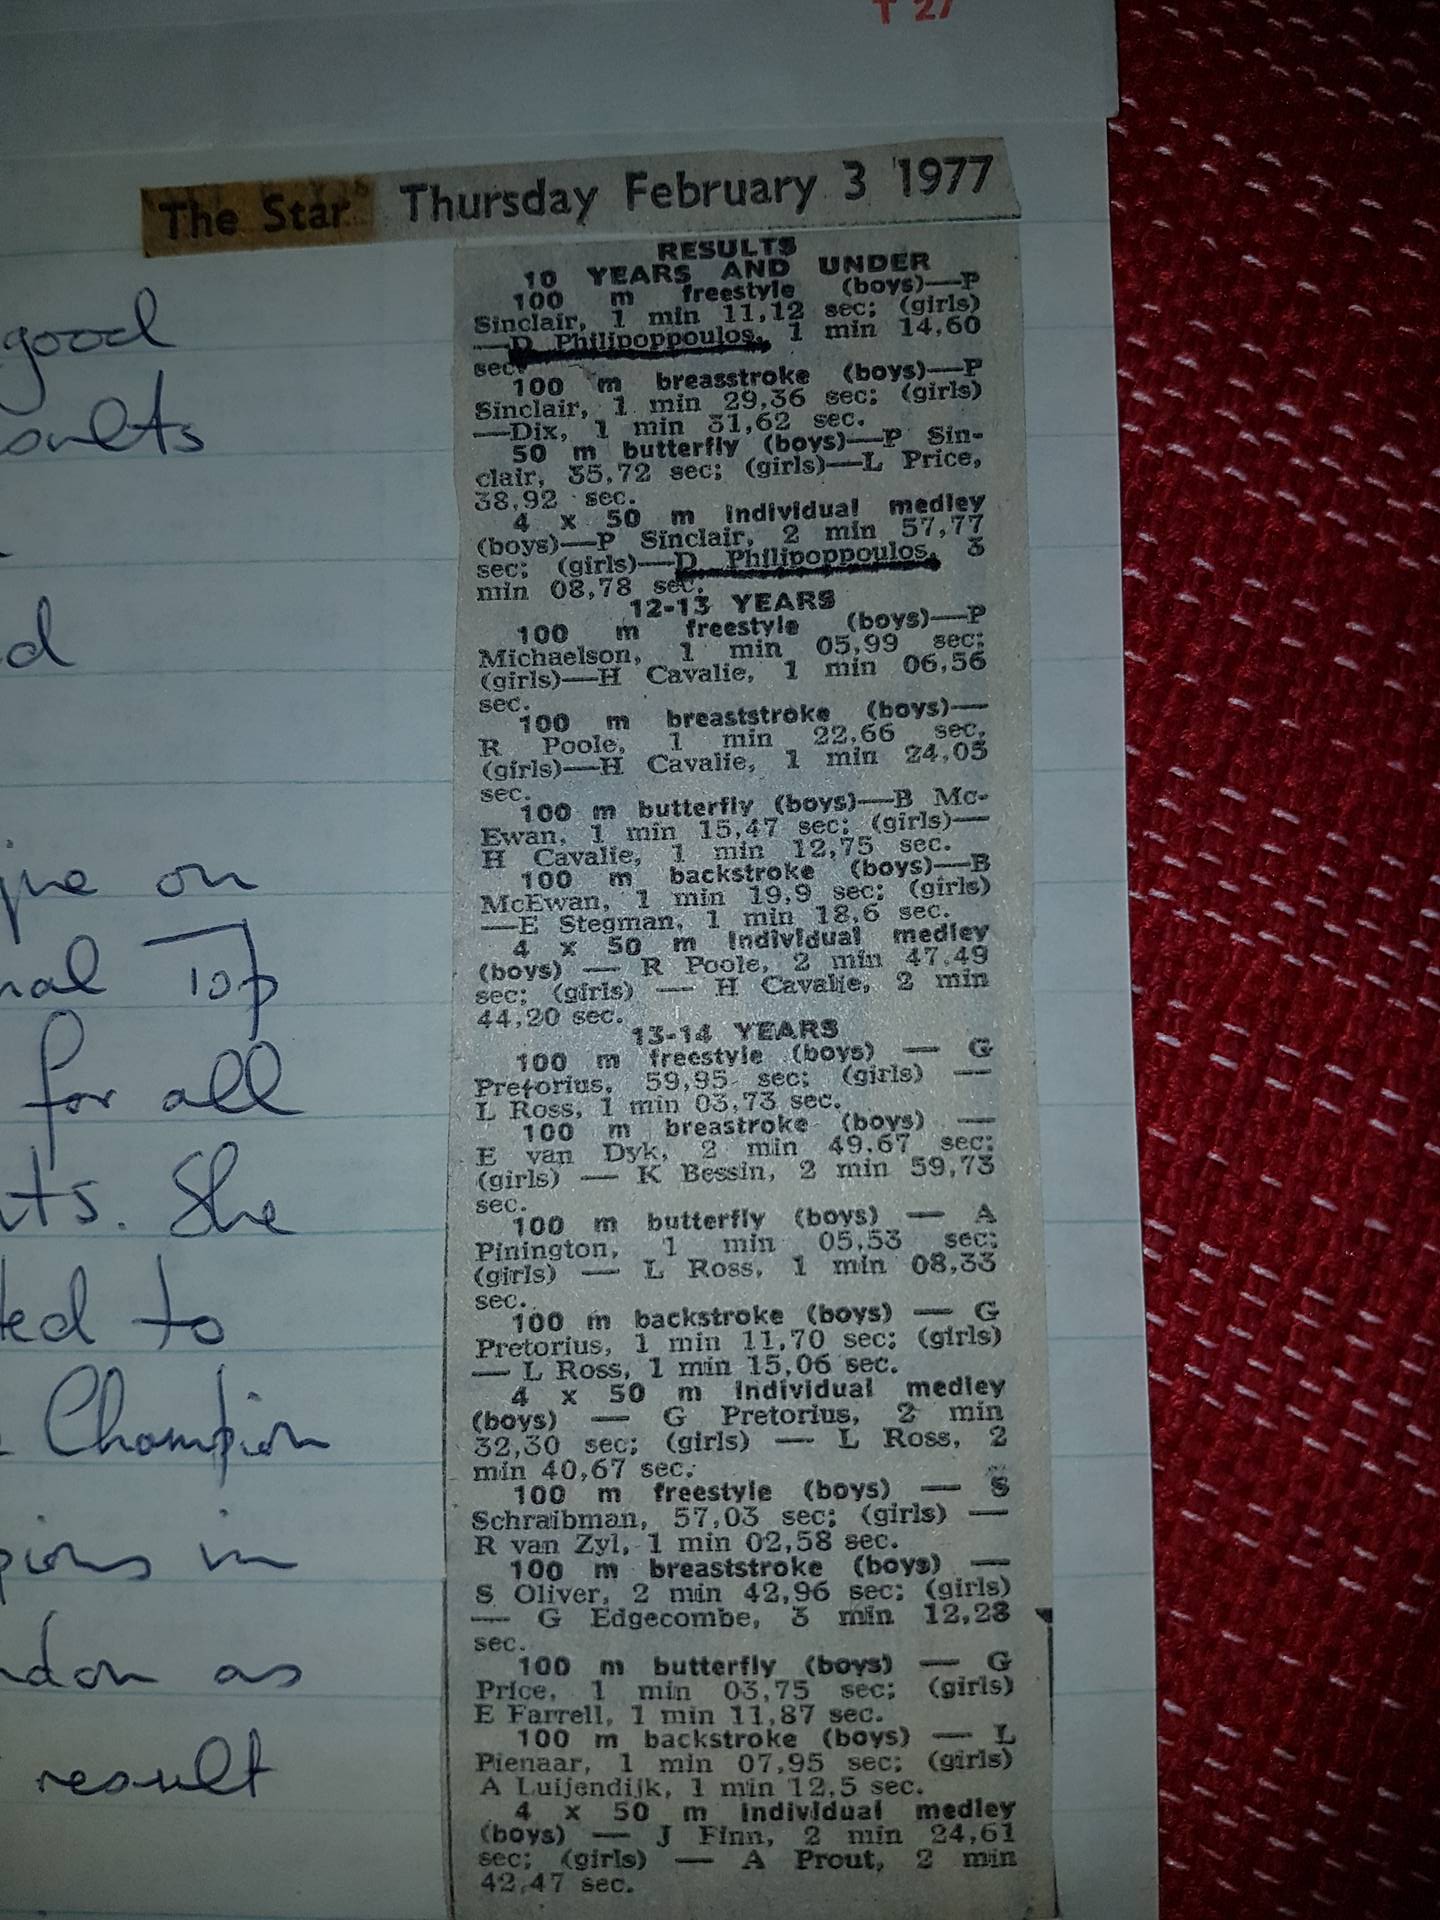 T 27
The Star Thursday February 3 1977
good
d
on
Top
for all
She
to
Champion
in
as
result
RESULTS
10 YEARS AND UNDER
100 m freestyle (boys)—P
Sinclair, 1 min 11,12 sec; (girls)
—D Philipoppoulos, 1 min 14,60
sec.
100 m breasstroke (boys)—P
Sinclair, 1 min 29,36 sec; (girls)
—Dix, 1 min 31,62 sec.
50 m butterfly (boys)—P Sin-
clair, 35,72 sec; (girls)—L Price,
38,92 sec.
4 x 50 m individual medley
(boys)—P Sinclair, 2 min 57,77
sec; (girls)—D Philipoppoulos, 3
min 08,78 sec.
12-13 YEARS
100 m freestyle (boys)—P
Michaelson, 1 min 05,99 sec;
(girls)—H Cavalie, 1 min 06,56
sec.
100 m breaststroke (boys)—
R Poole, 1 min 22,66 sec,
(girls)—H Cavalie, 1 min 24,05
sec.
100 m butterfly (boys)—B Mc-
Ewan, 1 min 15,47 sec; (girls)—
H Cavalie, 1 min 12,75 sec.
100 m backstroke (boys)—B
McEwan, 1 min 19,9 sec; (girls)
—E Stegman, 1 min 18,6 sec.
4 x 50 m individual medley
(boys) — R Poole, 2 min 47,49
sec; (girls) — H Cavalie, 2 min
44,20 sec.
13-14 YEARS
100 m freestyle (boys) — G
Pretorius, 59,95 sec; (girls) —
L Ross, 1 min 03,73 sec.
100 m breastroke (boys) —
E van Dyk, 2 min 49,67 sec;
(girls) — K Bessin, 2 min 59,73
sec.
100 m butterfly (boys) — A
Pinington, 1 min 05,53 sec;
(girls) — L Ross, 1 min 08,33
sec.
100 m backstroke (boys) — G
Pretorius, 1 min 11,70 sec; (girls)
— L Ross, 1 min 15,06 sec.
4 x 50 m individual medley
(boys) — G Pretorius, 2 min
32,30 sec; (girls) — L Ross, 2
min 40,67 sec.
100 m freestyle (boys) — S
Schraibman, 57,03 sec; (girls) —
R van Zyl, 1 min 02,58 sec.
100 m breaststroke (boys) —
S Oliver, 2 min 42,96 sec; (girls)
— G Edgecombe, 3 min 12,28
sec.
100 m butterfly (boys) — G
Price, 1 min 03,75 sec; (girls)
E Farrell, 1 min 11,87 sec.
100 m backstroke (boys) — L
Pienaar, 1 min 07,95 sec; (girls)
A Luijendijk, 1 min 12,5 sec.
4 x 50 m individual medley
(boys) — J Finn, 2 min 24,61
sec; (girls) — A Prout, 2 min
42,47 sec.